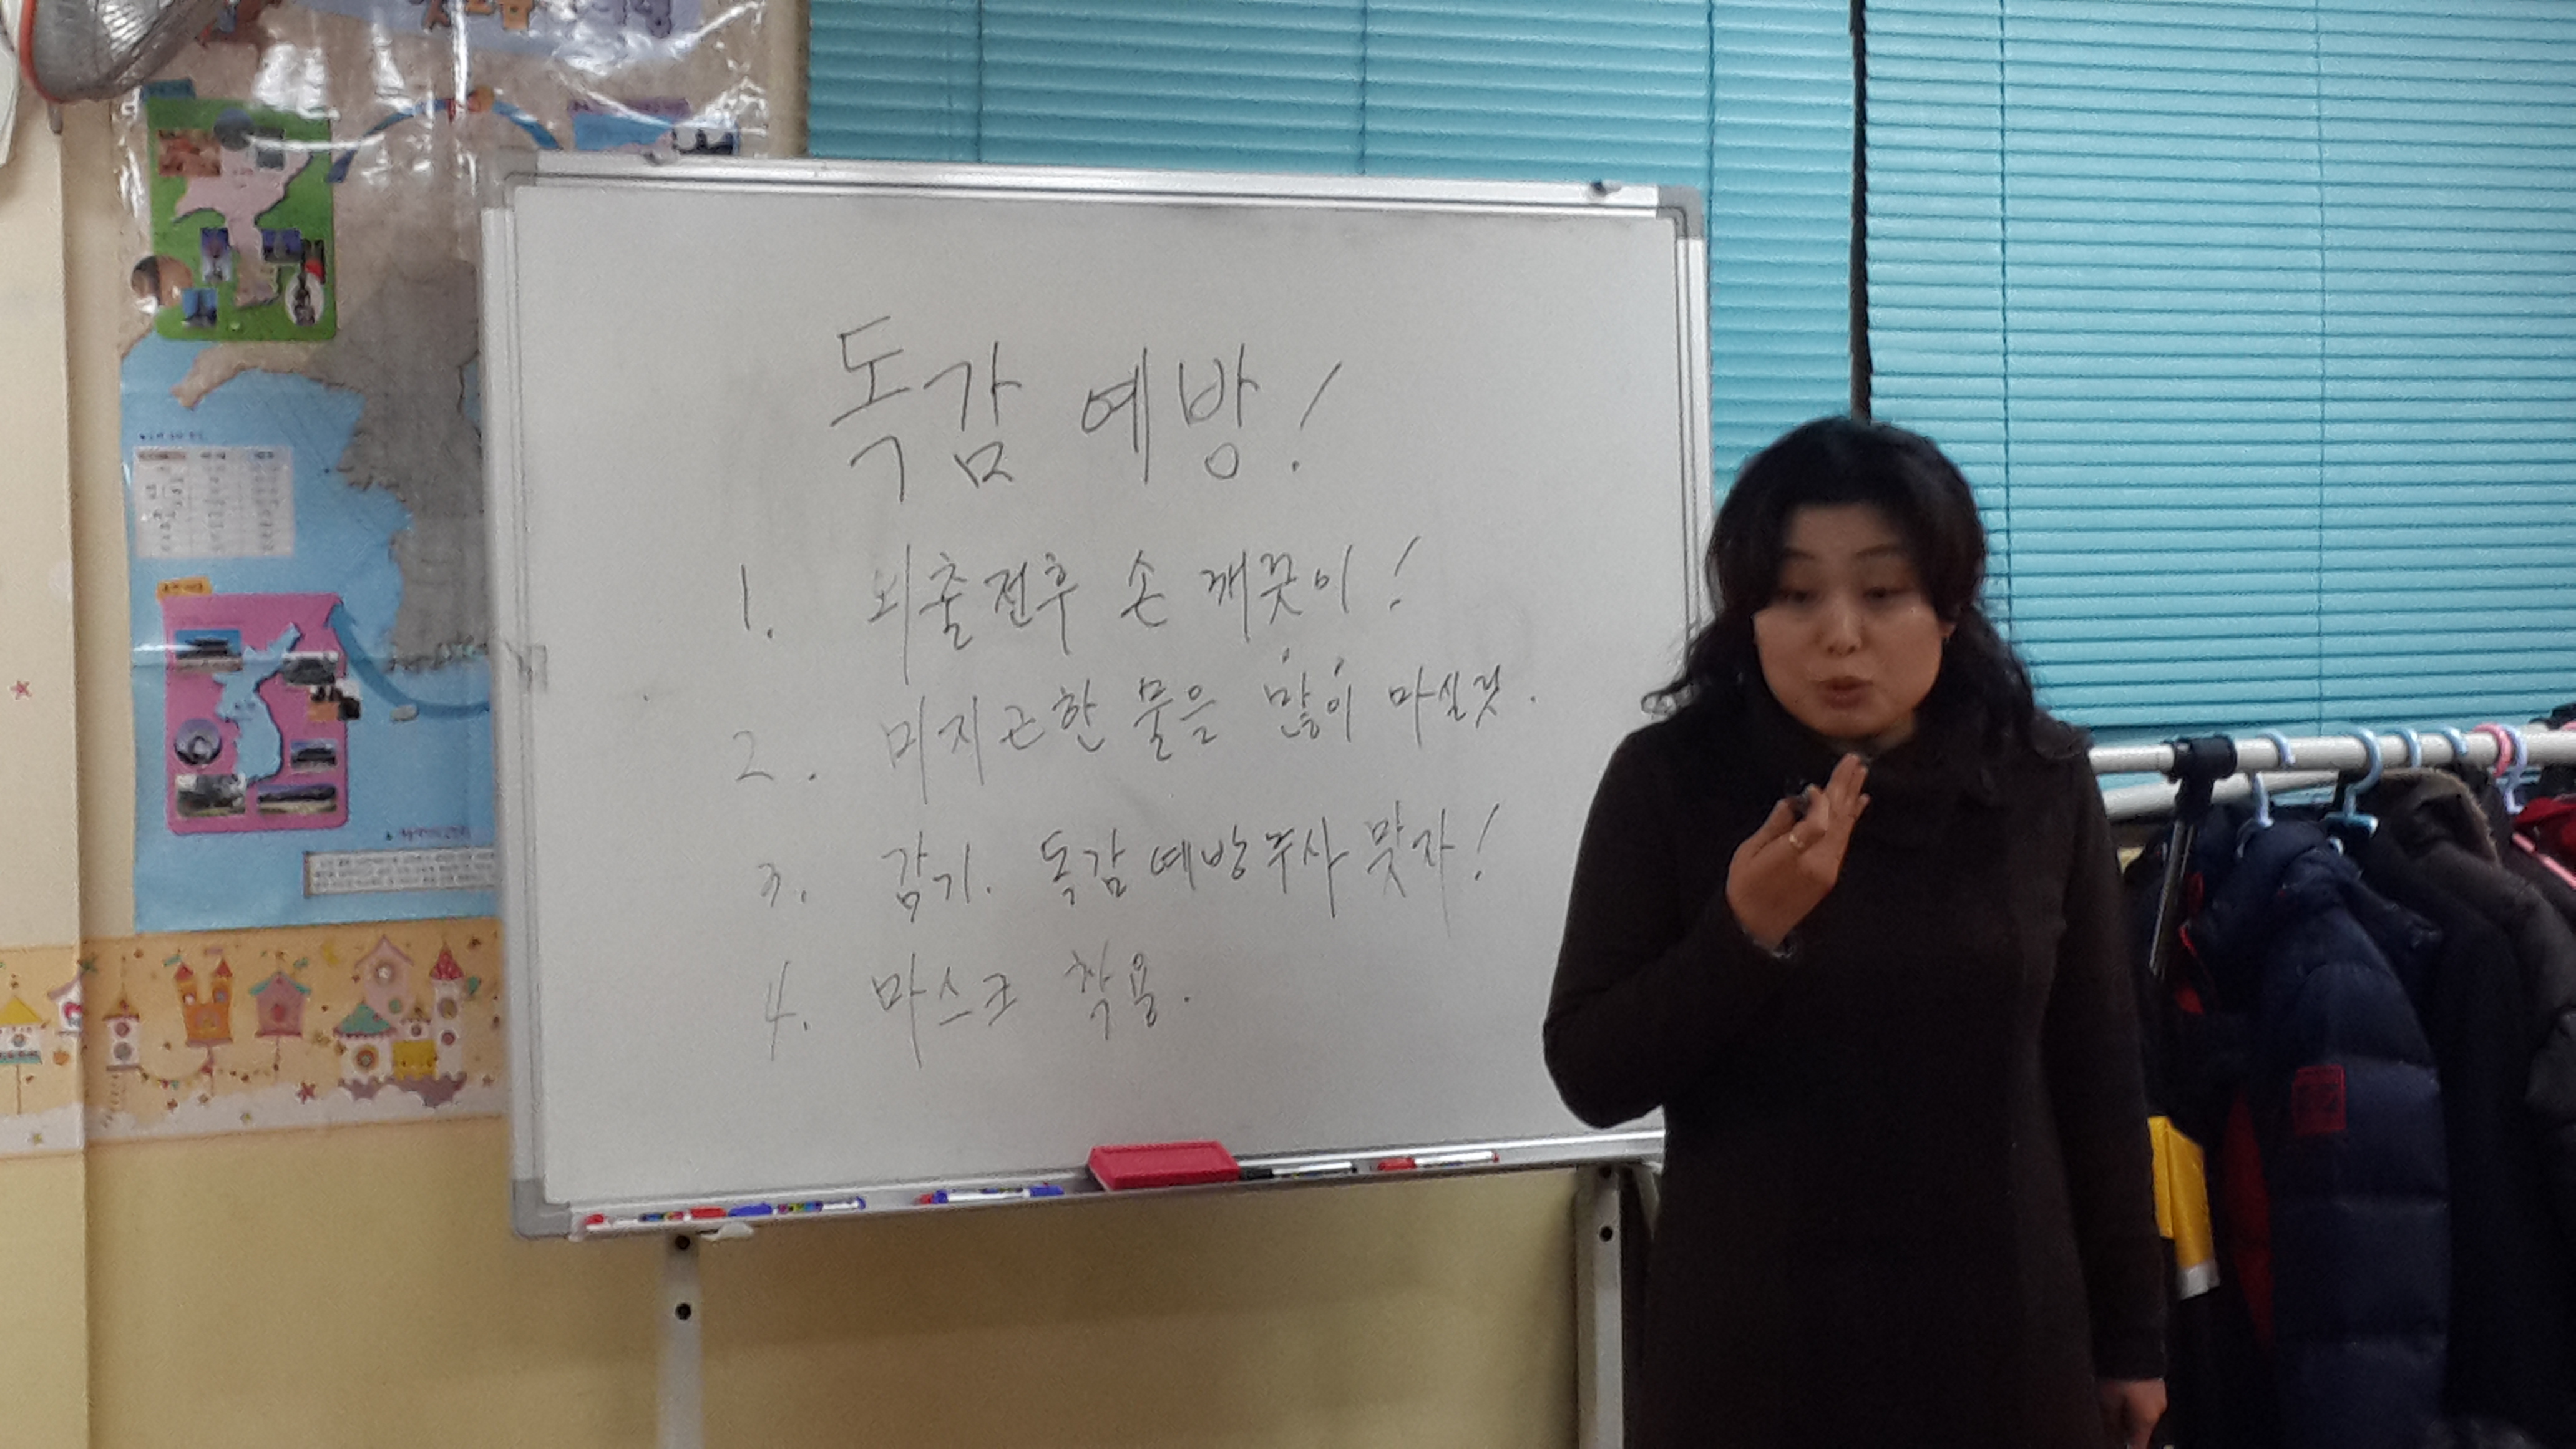 독감 예방!
1. 외출전후 손 깨끗이!
2. 미지근한 물을 많이 마실것.
3. 감기. 독감 예방주사 맞자!
4. 마스크 착용.